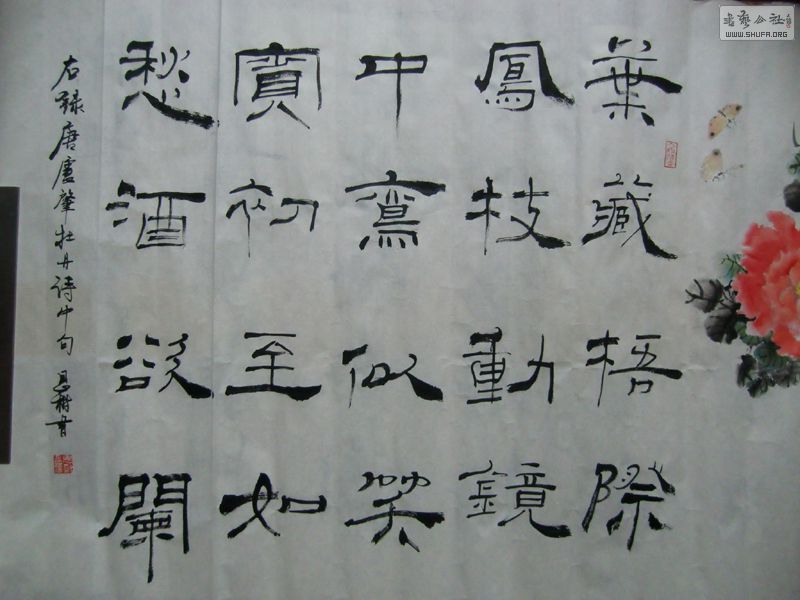 葉藏梧際
鳳枝動鏡
中鸞似笑
賓初至如
愁酒欲闌
右録唐盧肇牡丹詩中句
書藝公社
WWW.SHUFA.ORG